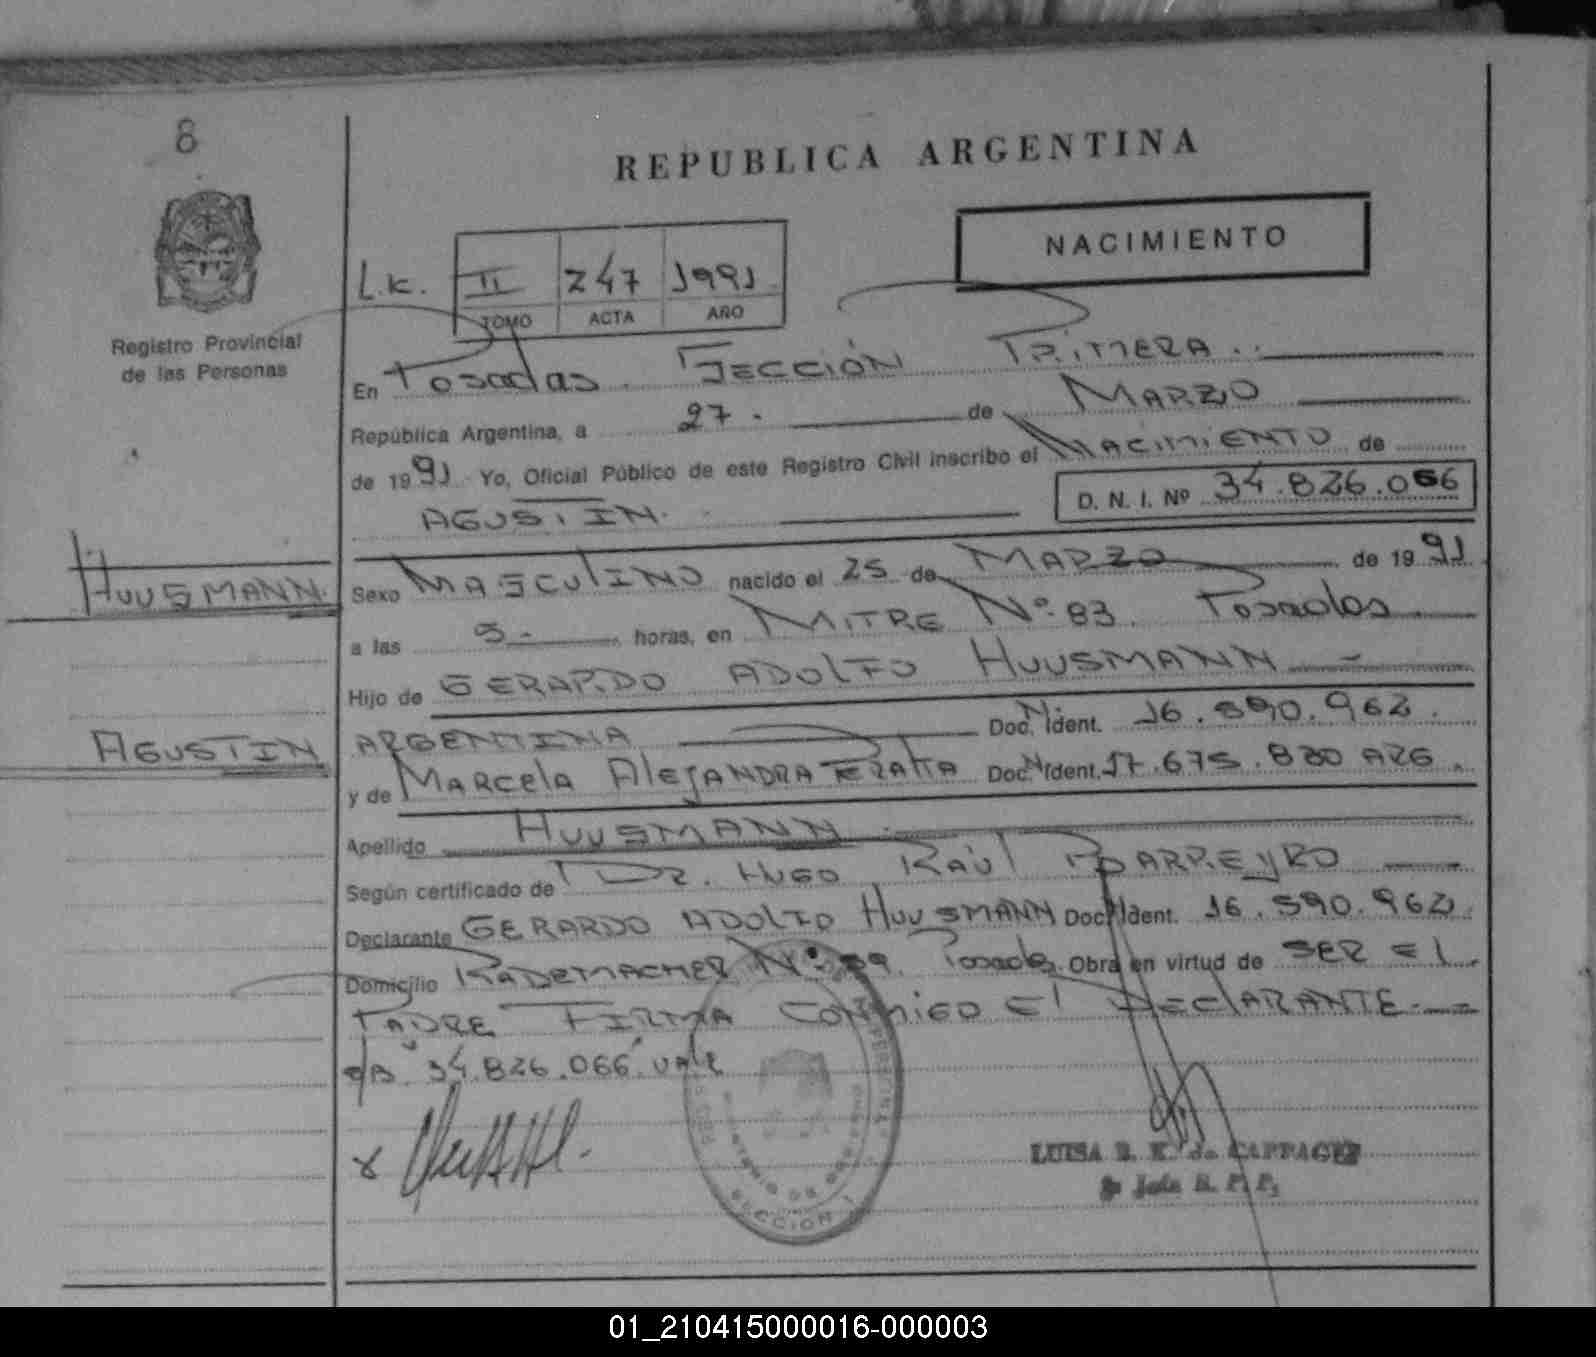 8
REPUBLICA ARGENTINA
NACIMIENTO
L.K. II 247 1991
TOMO ACTA AÑO
Registro Provincial
de las Personas
En Posadas. SECCIÓN PRIMERA.
República Argentina, a 27. de MARZO
de 1991 Yo, Oficial Público de este Registro Civil inscribo el NACIMIENTO de
D. N. I. Nº 34.826.066
AGUSTIN.
HUUSMANN.
Sexo MASCULINO nacido el 25 de MARZO de 1991
a las horas, en MITRE Nº 83. Posadas
Hijo de GERARDO ADOLFO HUUSMANN
AGUSTIN
ARGENTINA Doc. N. Ident. 16.590.962.
y de MARCELA ALEJANDRA Doc. N. Ident. 17.675.830 ARG.
Apellido HUUSMANN
Según certificado de Dr. HUGO RAÚL BARREYRO
Declarante GERARDO ADOLFO HUUSMANN Doc. N. Ident. 16.590.962.
Domicilio RADEMACHER Nº Posadas. Obra en virtud de SER EL
PADRE FIRMA CONMIGO EL DECLARANTE.
"34.826.066" VALE
SECCION 1
LUISA B. K. de
Jefe R. P. P.
01_210415000016-000003